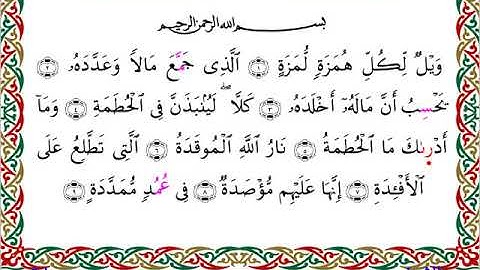 بسم الله الرحمن الرحيم
وَيْلٌ لِّكُلِّ هُمَزَةٍ لُّمَزَةٍ ١ ٱلَّذِى جَمَّعَ مَالًا وَعَدَّدَهُۥ ٢
يَحْسِبُ أَنَّ مَالَهُۥٓ أَخْلَدَهُۥ ٣ كَلَّا ۖ لَيُنۢبَذَنَّ فِى ٱلْحُطَمَةِ ٤ وَمَآ
أَدْرَىٰكَ مَا ٱلْحُطَمَةُ ٥ نَارُ ٱللَّهِ ٱلْمُوقَدَةُ ٦ ٱلَّتِى تَطَّلِعُ عَلَى
ٱلْأَفْـِٔدَةِ ٧ إِنَّهَا عَلَيْهِم مُّؤْصَدَةٌ ٨ فِى عُمُدٍ مُّمَدَّدَةٍ ٩